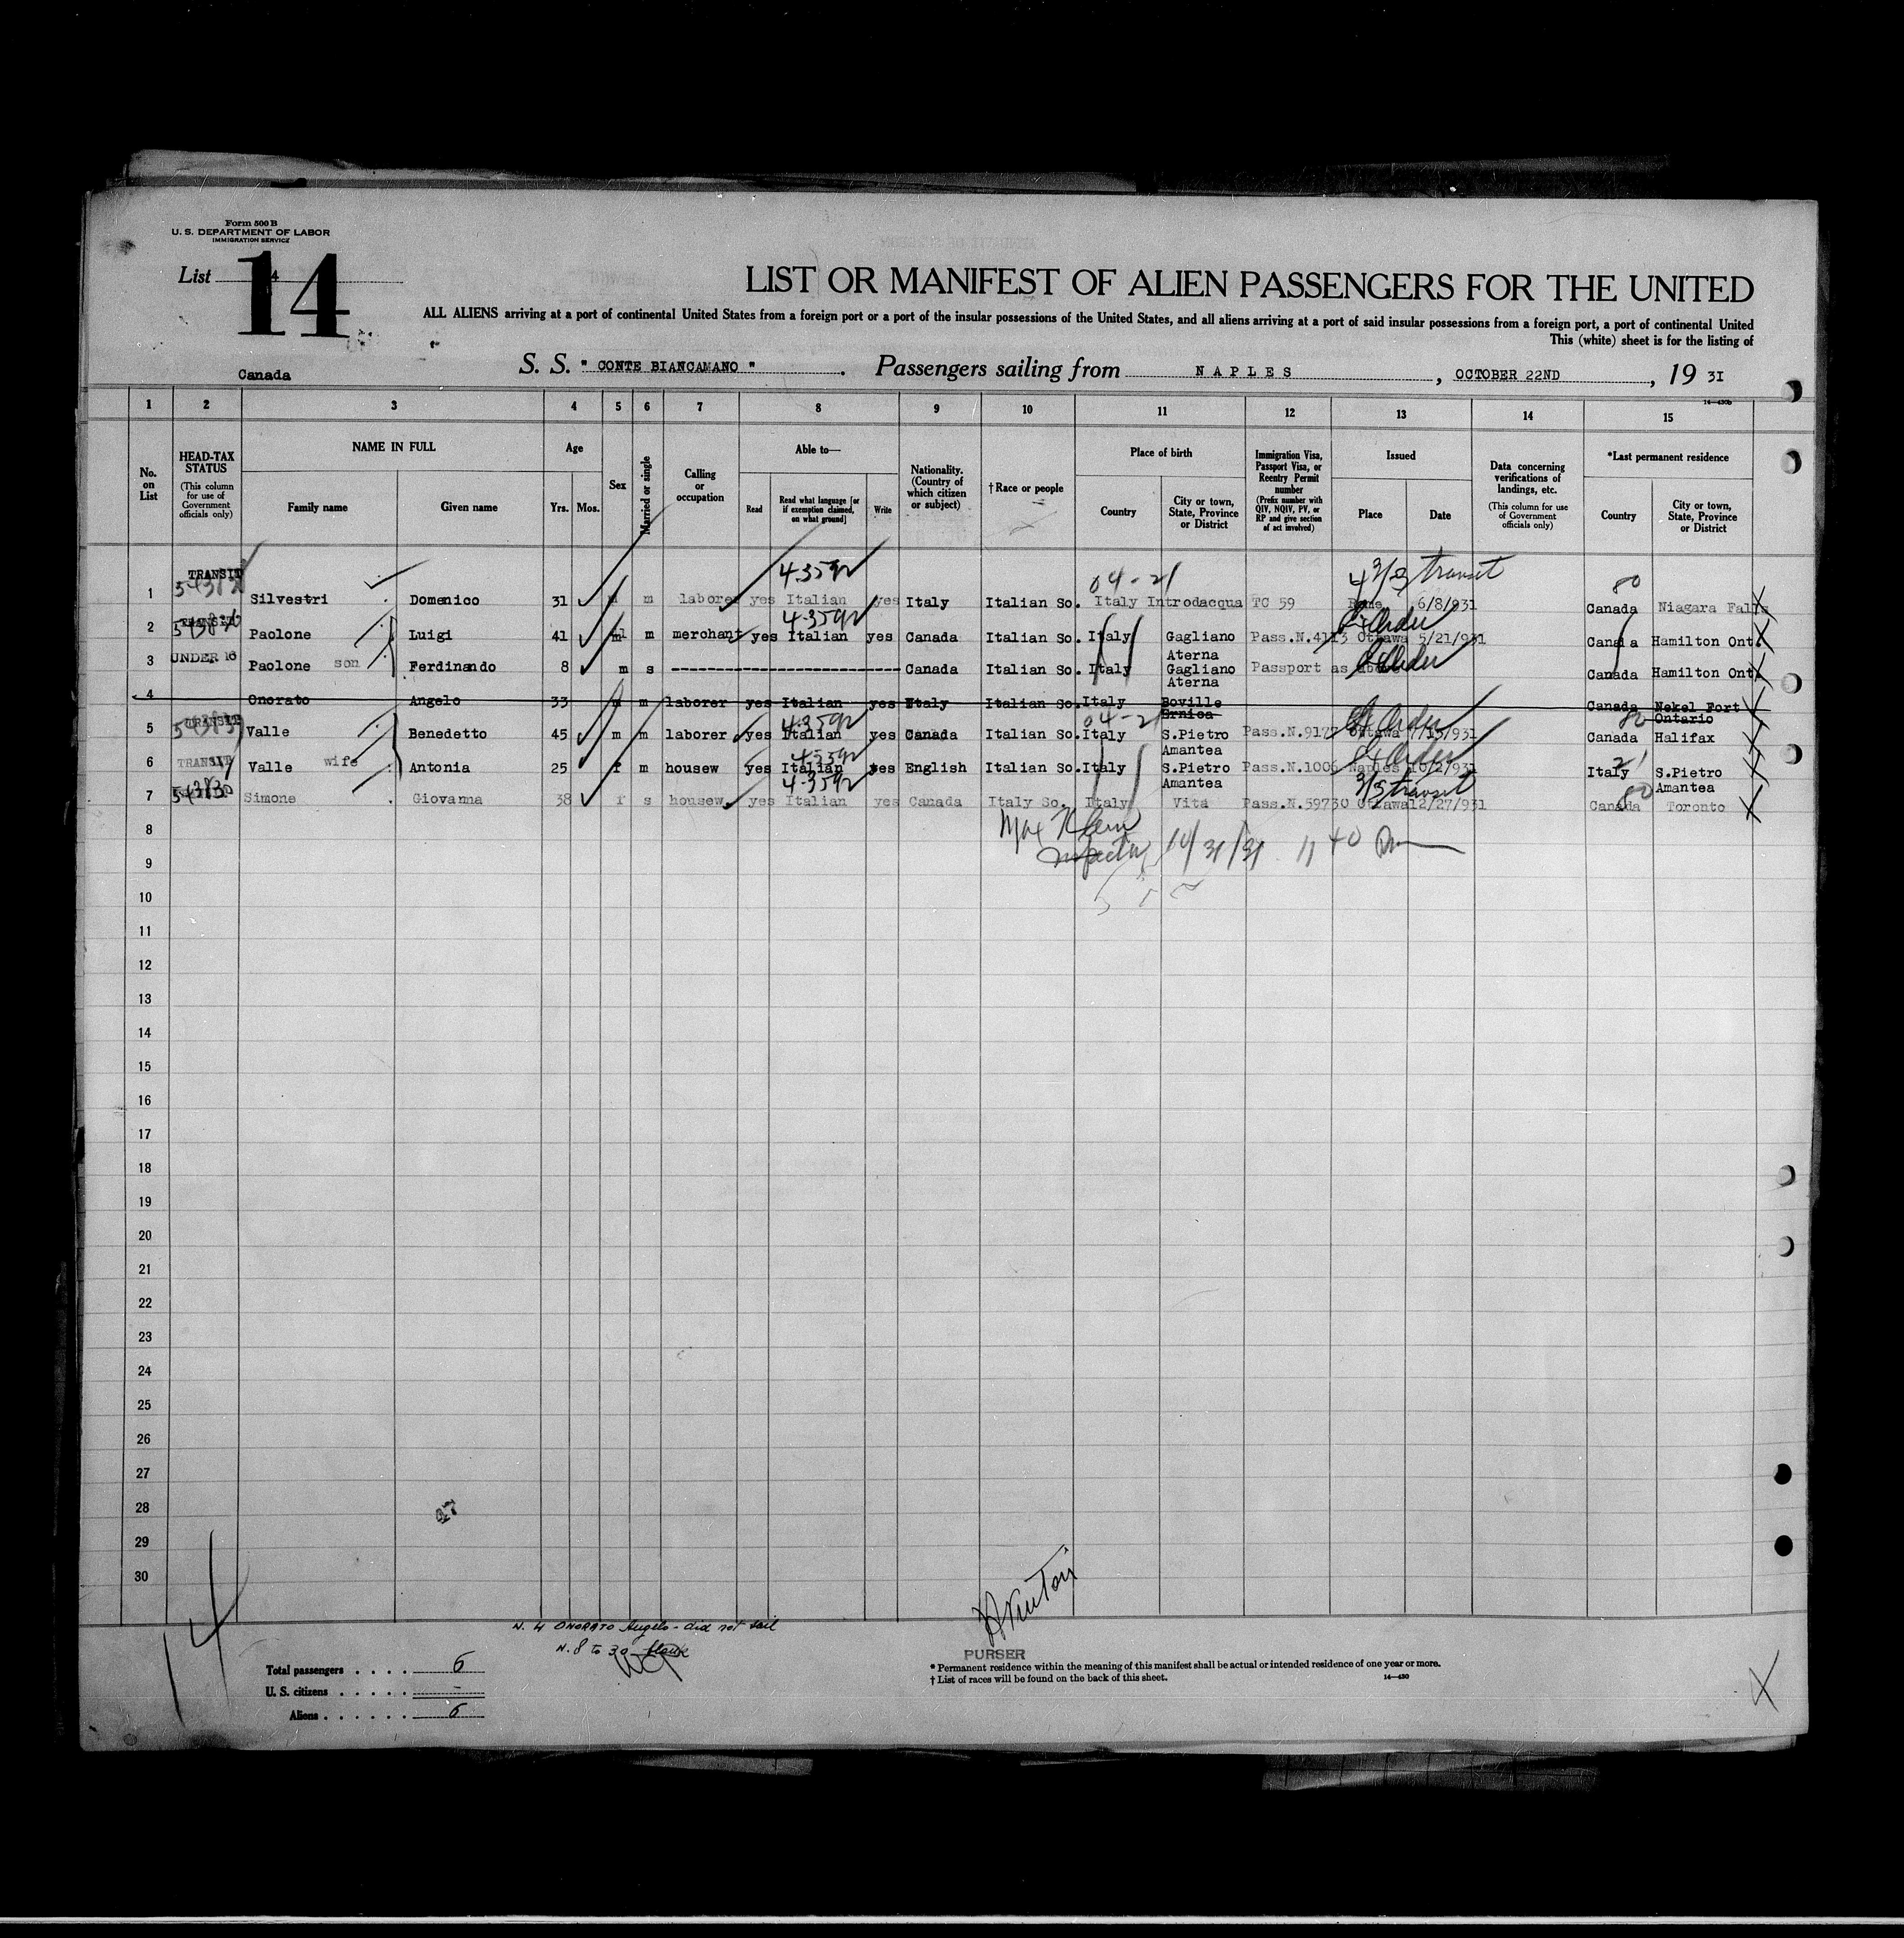 Form 500 B
U. S. DEPARTMENT OF LABOR
IMMIGRATION SERVICE
List 14
LIST OR MANIFEST OF ALIEN PASSENGERS FOR THE UNITED
ALL ALIENS arriving at a port of continental United States from a foreign port or a port of the insular possessions of the United States, and all aliens arriving at a port of said insular possessions from a foreign port, a port of continental United
This (white) sheet is for the listing of
Canada
S. S. " CONTE BIANCAMANO " . Passengers sailing from NAPLES , OCTOBER 22ND , 19 31
1 2 3 4 5 6 7 8 9 10 11 12 13 14 15
No. on List
HEAD-TAX STATUS (This column for use of Government officials only)
NAME IN FULL
Family name Given name
Age
Yrs. Mos.
Sex
Married or single
Calling or occupation
Able to—
Read Read what language [or if exemption claimed, on what ground] Write
Nationality. (Country of which citizen or subject)
†Race or people
Place of birth
Country City or town, State, Province or District
Immigration Visa, Passport Visa, or Reentry Permit number (Prefix number with QIV, NQIV, PV, or RP and give section of act involved)
Issued
Place Date
Data concerning verifications of landings, etc. (This column for use of Government officials only)
*Last permanent residence
Country City or town, State, Province or District
TRANSIT 4-3592 04-21 4 3/3 transit 80
1 Silvestri Domenico 31 m laborer yes Italian yes Italy Italian So. Italy Introdacqua TC 59 Rome 6/8/931 Canada Niagara Falls
2 TRANSIT Paolone Luigi 41 m m merchant yes Italian yes Canada Italian So. Italy Gagliano Aterna Pass.N.4113 Ottawa 5/21/931 Canada Hamilton Ont.
3 UNDER 16 Paolone son Ferdinando 8 m s Canada Italian So. Italy Gagliano Aterna Passport as above Canada Hamilton Ont.
4 Onorato Angelo 33 m m laborer yes Italian yes Italy Italian So. Italy Boville Ernica Canada Nekel Fort Ontario
5 TRANSIT Valle Benedetto 45 m m laborer yes Italian yes Canada Italian So. Italy S.Pietro Amantea Ottawa Canada Halifax
6 TRANSIT Valle wife Antonia 25 f m housew yes Italian yes English Italian So. Italy S.Pietro Amantea Pass.N.1006 Naples 10/2/931 Italy S.Pietro Amantea
7 Simone Giovanna 38 f s housew. yes Italian yes Canada Italy So. Italy Vita Pass.N.59730 Ottawa 12/27/931 Canada Toronto
8
Max Klein
Inspector 10/31/31 11 40 Am
9
10
11
12
13
14
15
16
17
18
19
20
21
22
23
24
25
26
27
28
29
30
N. 4 ONORATO Angelo - did not sail
N. 8 to 30 blank
Total passengers . . . . 6
U. S. citizens . . . . . . -
Aliens . . . . . . 6
PURSER
* Permanent residence within the meaning of this manifest shall be actual or intended residence of one year or more.
† List of races will be found on the back of this sheet.
14—430